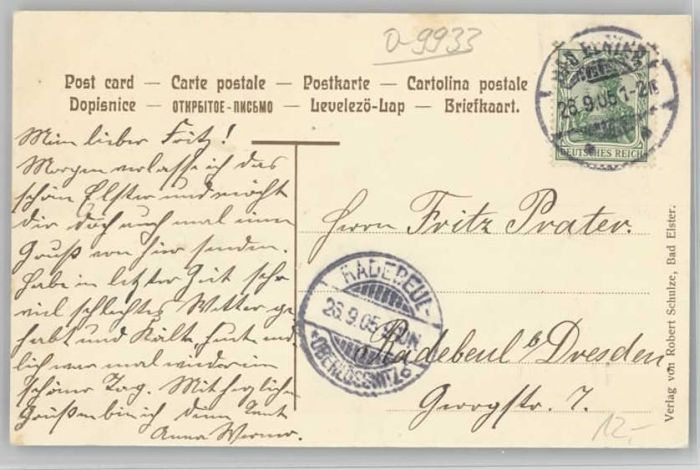 0-9933
Post card — Carte postale — Postkarte — Cartolina postale
Dopisnice — ОТКРЫТОЕ-ПИСЬМО — Levelezö-Lap — Briefkaart.
BAD ELSTER
26.9.05 1-2 N
DEUTSCHES REICH
Mein lieber Fritz!
Morgen verlasse ich das
schöne Elster und möcht
dir doch auch mal einen
Gruß von hier senden.
Habe in letzter Zeit sehr
viel schlechtes Wetter ge
habt und Kälte, heut end
lich war mal wieder ein
schöner Tag. Mit herzlichen
Grüßen bin ich deine Tante
Anna Werner.
Herrn Fritz Prater.
Radebeul b Dresden
Georgstr. 7.
RADEBEUL-
26.9.05
*OBERLÖSSNITZ
Verlag von Robert Schulze, Bad Elster.
12,-